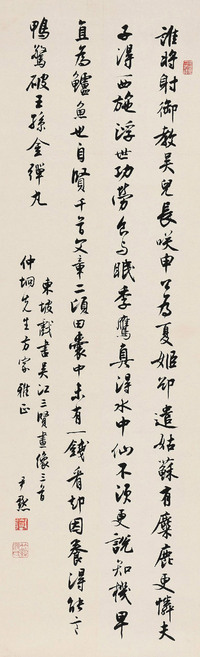 誰將射御教吳兒長咲申公為夏姬卻遣姑蘇有麋鹿更憐夫
子得西施浮世功勞食与眠季鷹真得水中仙不須更說知機早
直為鱸魚也自賢千首文章二頃田囊中未有一錢看却因養得能言
鴨驚破王孫金彈丸
東坡戲書吳江三賢畫像三首
仲坰先生方家雅正
尹默